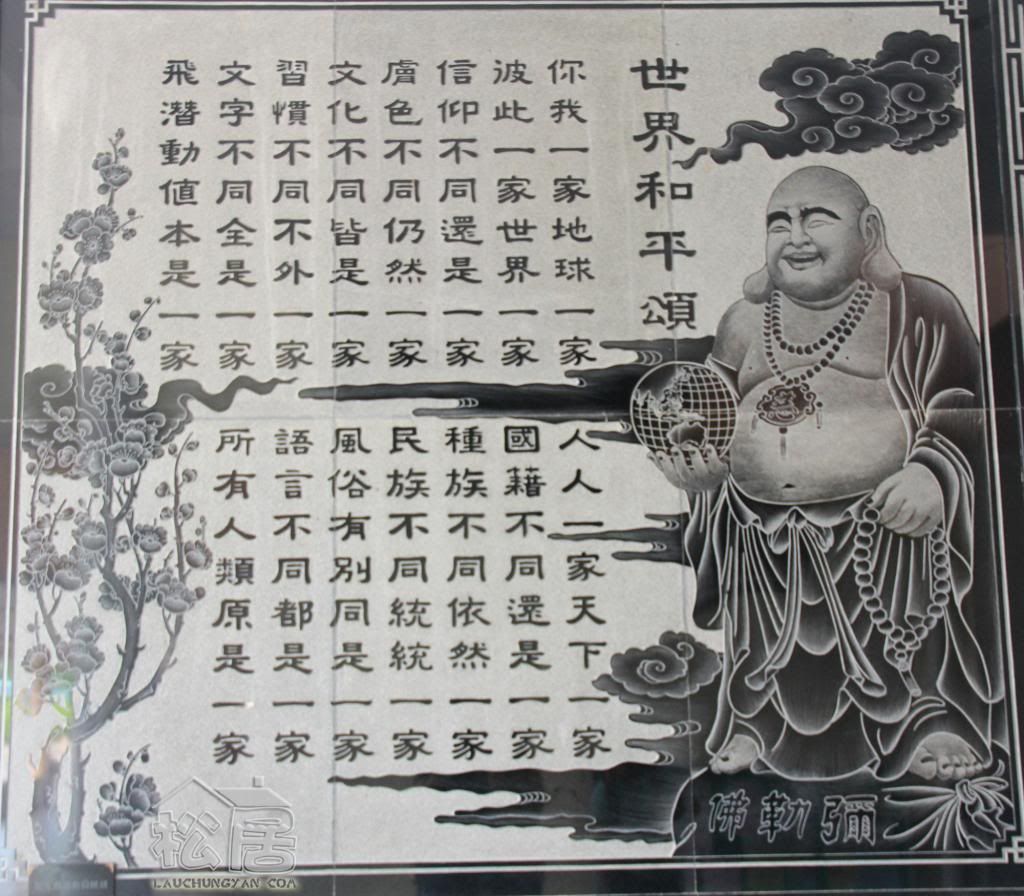 世界和平頌
你我一家地球一家
人人一家天下一家
彼此一家世界一家
國藉不同還是一家
信仰不同還是一家
種族不同依然一家
膚色不同仍然一家
民族不同統統一家
文化不同皆是一家
風俗有別同是一家
習慣不同不外一家
語言不同都是一家
文字不同全是一家
所有人類原是一家
飛潛動值本是一家
彌勒佛
松居
LAUCHUNGYAN.COM